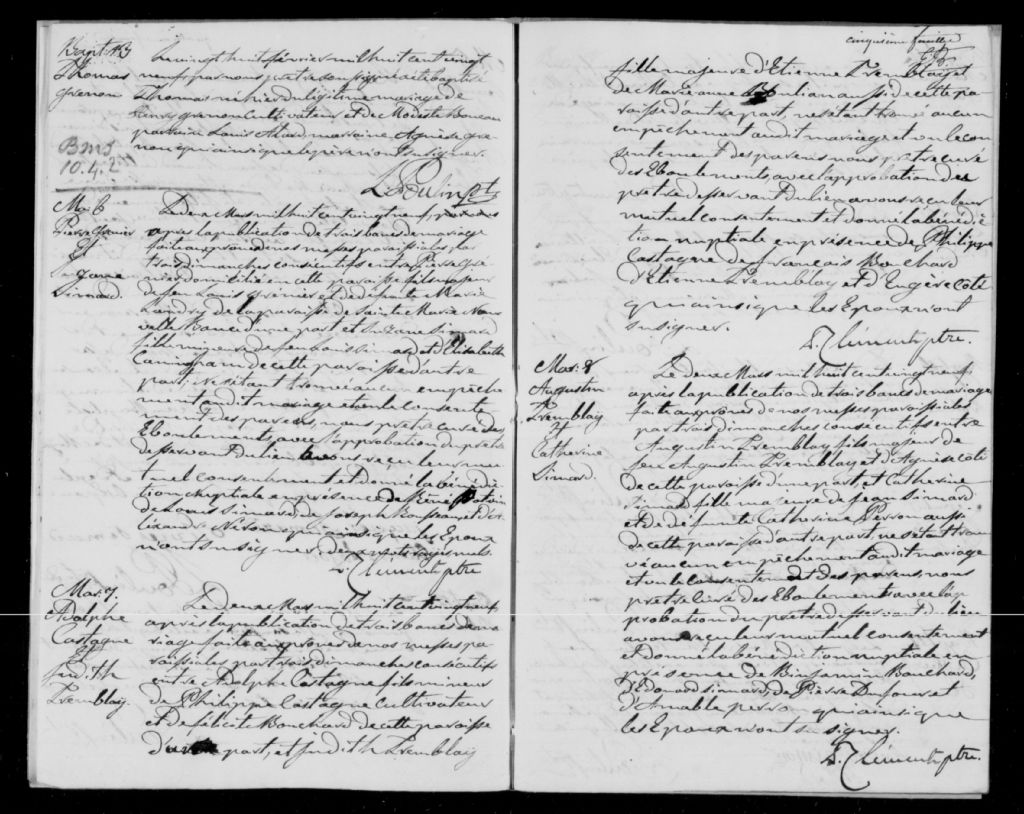 Bapt. 13
Thomas
Grenon
BMS
10.4.2
Le vingt huit février mil huit cent vingt
neuf par nous prêtre soussigné a été baptisé
Thomas né hier du légitime mariage de
Henry Grenon Cultivateur et de Modeste
parrain Louis Alard, marraine Agnès Gre-
non qui ainsi que le père n'ont su signer.
Mar. 6
Pierre Grenier
Et
Suzanne
Simard.
Le deux Mars mil huit cent vingt neuf,
après la publication de trois bancs de mariage
faite aux prônes de nos messes paroissiales, par
trois dimanches consécutifs entre Pierre Gre-
nier domicilié en cette paroisse fils majeur
de feu Louis Grenier et de défunte Marie
Landry de la paroisse de Sainte Marie Nou-
velle Beauce d'une part, et Suzane Simard
fille mineure de feu Louis Simard et d'Elisabeth
de cette paroisse d'autre
part; ne s'étant trouvé aucun empêche-
ment au dit mariage et vu le consente-
ment des parens, nous prêtre curé des
Eboulements, avec l'approbation du prêtre
desservant du lieu avons reçu leur mu-
tuel consentement et donné la bénédic-
tion nuptiale en présence de Réné
de Louis Simard, de Joseph et d'
qui ainsi que les Epoux
n'ont su signer.
Clément ptre
Mar. 7.
Adolphe
Castagne
Et
Judith
Tremblay.
Le deux Mars mil huit cent vingt neuf,
après la publication de trois bancs de ma-
riage faite aux prônes de nos messes pa-
roissiales par trois dimanches consécutifs
entre Adolphe Castagne fils mineur
de Philippe Castagne Cultivateur
et de Félicité Bouchard de cette paroisse
d'une part, et Judith Tremblay
cinquième feuillet
fille majeure d'Etienne Tremblay et
de Marie anne aussi de cette pa-
roisse d'autre part, ne s'étant trouvé aucun
empêchement au dit mariage et vu le con-
sentement des parens nous prêtre curé
des Eboulements, avec l'approbation du
prêtre desservant du lieu avons reçu leur
mutuel consentement et donné la bénédic-
tion nuptiale en présence de Philippe
Castagne de François Bouchard
d'Etienne Tremblay et d'Eugère Coté
qui ainsi que les Epoux n'ont
su signer.
Clément ptre.
Mar. 8
Augustin
Tremblay
Et
Catherine
Simard.
Le deux Mars mil huit cent vingt neuf,
après la publication de trois bancs de mariage
faite aux prônes de nos messes paroissiales
par trois dimanches consécutifs entre
Augustin Tremblay fils majeur de
feu Augustin Tremblay et d'Agnès Coté
de cette paroisse d'une part, et Catherine
Simard fille majeure de Jean Simard
et de défunte Catherine Perron aussi
de cette paroisse d'autre part, ne s'étant trou-
vé aucun empêchement au dit mariage
et vu le consentement des parens, nous
prêtre curé des Eboulements avec l'ap-
probation du prêtre desservant du lieu
avons reçu leur mutuel consentement
et donné la bénédiction nuptiale en
présence de Benjamin Bouchard,
d'Edouard Simard, de Pierre Dufour et
d'Amable Perron qui ainsi que
les Epoux n'ont su signer.
Clément ptre.